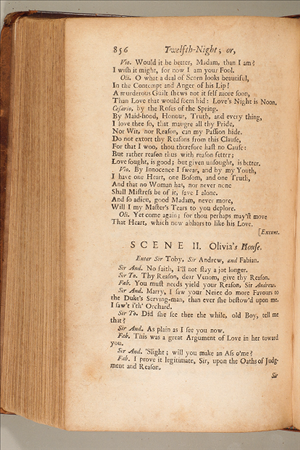 856 Twelfth-Night; or,
Vio. Would it be better, Madam, than I am?
I wish it might, for now I am your Fool.
Oli. O what a deal of Scorn looks beautiful,
In the Contempt and Anger of his Lip!
A murderous Guilt shews not it self more soon,
Than Love that would seem hid: Love's Night is Noon.
Cesario, by the Roses of the Spring,
By Maid-hood, Honour, Truth, and every thing,
I love thee so, that maugre all thy Pride,
Nor Wit, nor Reason, can my Passion hide.
Do not extort thy Reasons from this Clause,
For that I woo, thou therefore hast no Cause:
But rather reason thus with reason fetter;
Love sought, is good; but given unsought, is better.
Vio. By Innocence I swear, and by my Youth,
I have one Heart, one Bosom, and one Truth,
And that no Woman has, nor never none
Shall Mistress be of it, save I alone.
And so adieu, good Madam, never more,
Will I my Master's Tears to you deplore.
Oli. Yet come again; for thou perhaps may'st move
That Heart, which now abhors to like his Love.
[Exeunt.
SCENE II. Olivia's House.
Enter Sir Toby, Sir Andrew, and Fabian.
Sir And. No faith, I'll not stay a jot longer.
Sir To. Thy Reason, dear Venom, give thy Reason.
Fab. You must needs yield your Reason, Sir Andrew.
Sir And. Marry, I saw your Neice do more Favours to
the Duke's Serving-man, than ever she bestow'd upon me.
I saw't i'th' Orchard.
Sir To. Did she see thee the while, old Boy, tell me
that?
Sir And. As plain as I see you now.
Fab. This was a great Argument of Love in her toward
you.
Sir And. 'Slight; will you make an Ass o'me?
Fab. I prove it legitimate, Sir, upon the Oaths of Judg-
ment and Reason.
Sir